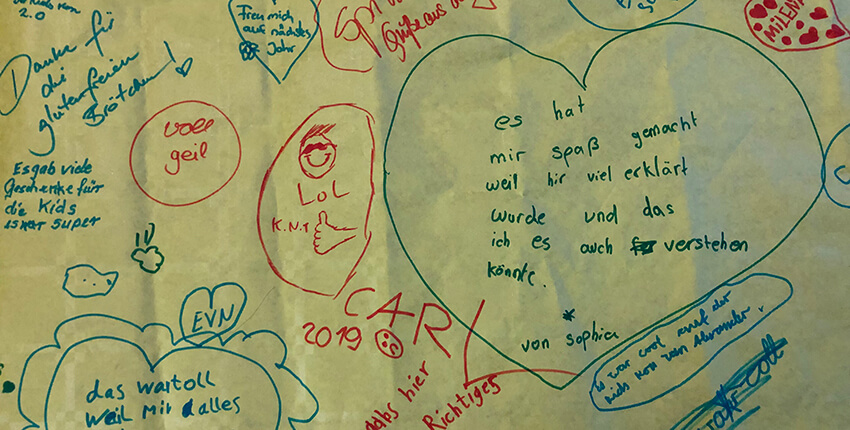 2.0
Danke für
die
glutenfreien
Brötchen!
Freu mich
auf nächstes
Jahr
Grüße aus
MILENA
voll
geil
Es gab viele
Geschenke für
die Kids
super
LOL
K.N.T
es hat
mir spaß gemacht
weil hir viel erklärt
wurde und das
ich es auch verstehen
könnte.
von Sophia
EVN
CARL
2019
das war toll
weil mir alles
hier
Richtiges
war cool auf der
von Alexander.
cool